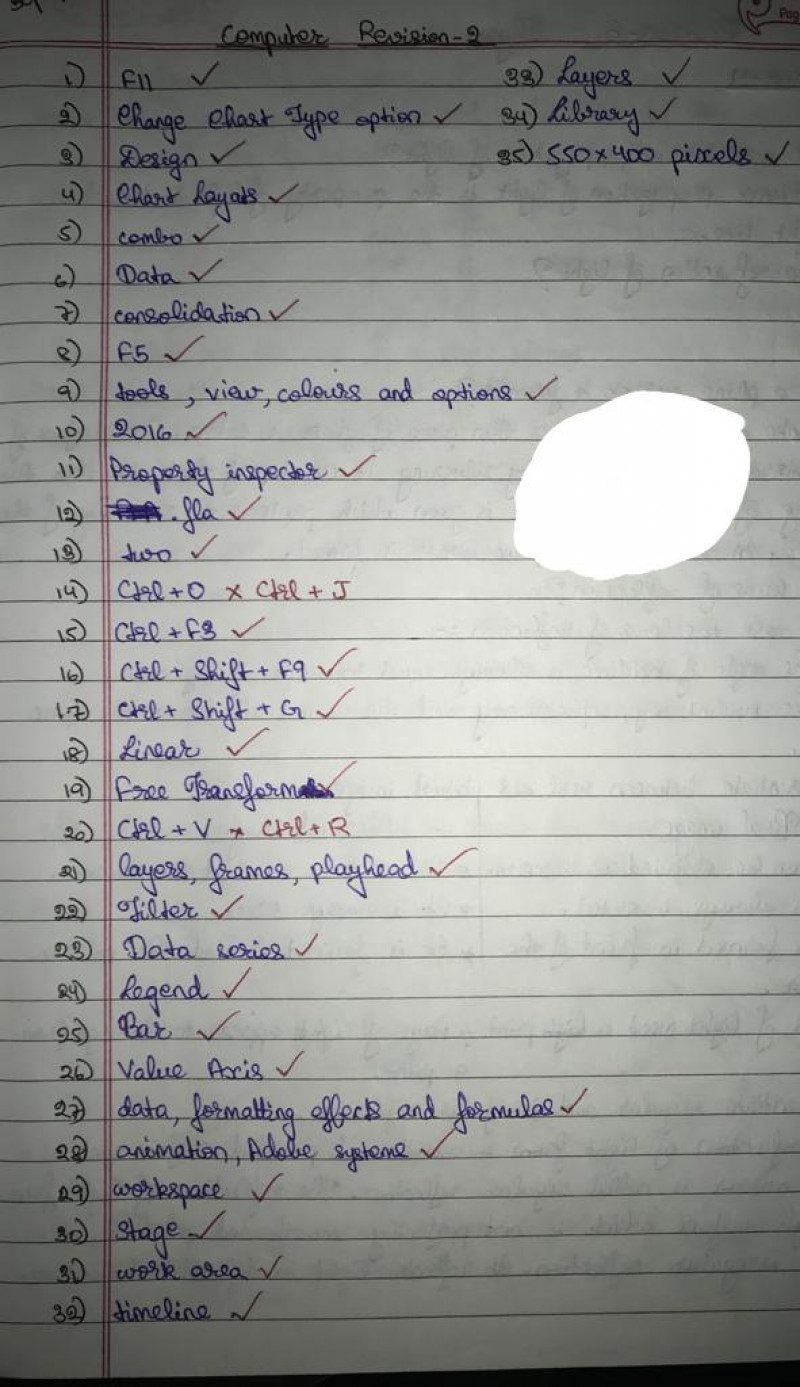 Pag
Computer Revision-2
1) F11 ✓
2) Change Chart Type option ✓
3) Design ✓
4) Chart Layats ✓
5) combo ✓
6) Data ✓
7) consolidation ✓
8) F5 ✓
9) tools, view, colours and options ✓
10) 2016 ✓
11) Property inspector ✓
12) .fla ✓
13) two ✓
14) Ctrl + O × Ctrl + J
15) Ctrl + F3 ✓
16) Ctrl + Shift + F9 ✓
17) Ctrl + Shift + G ✓
18) Linear ✓
19) Free Transform ✓
20) Ctrl + V × Ctrl + R
21) layers, frames, playhead ✓
22) Filter ✓
23) Data series ✓
24) Legend ✓
25) Bar ✓
26) Value Axis ✓
27) data, formatting effects and formulas ✓
28) animation, Adobe systems ✓
29) workspace ✓
30) Stage ✓
31) work area ✓
32) timeline ✓
33) Layers ✓
34) Library ✓
35) 550 × 400 pixels ✓